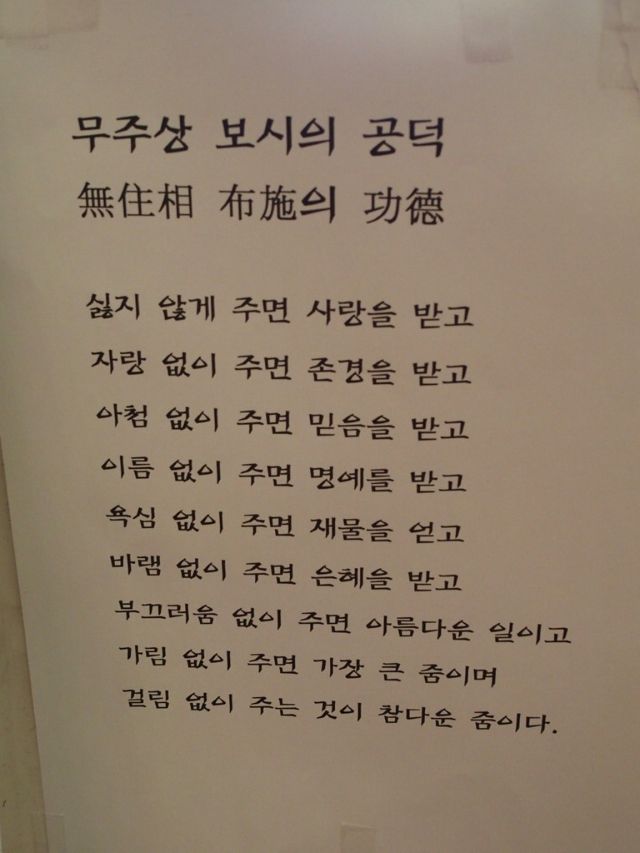 무주상 보시의 공덕
無住相 布施의 功德
싫지 않게 주면 사랑을 받고
자랑 없이 주면 존경을 받고
아첨 없이 주면 믿음을 받고
이름 없이 주면 명예를 받고
욕심 없이 주면 재물을 얻고
바램 없이 주면 은혜을 받고
부끄러움 없이 주면 아름다운 일이고
가림 없이 주면 가장 큰 줌이며
걸림 없이 주는 것이 참다운 줌이다.